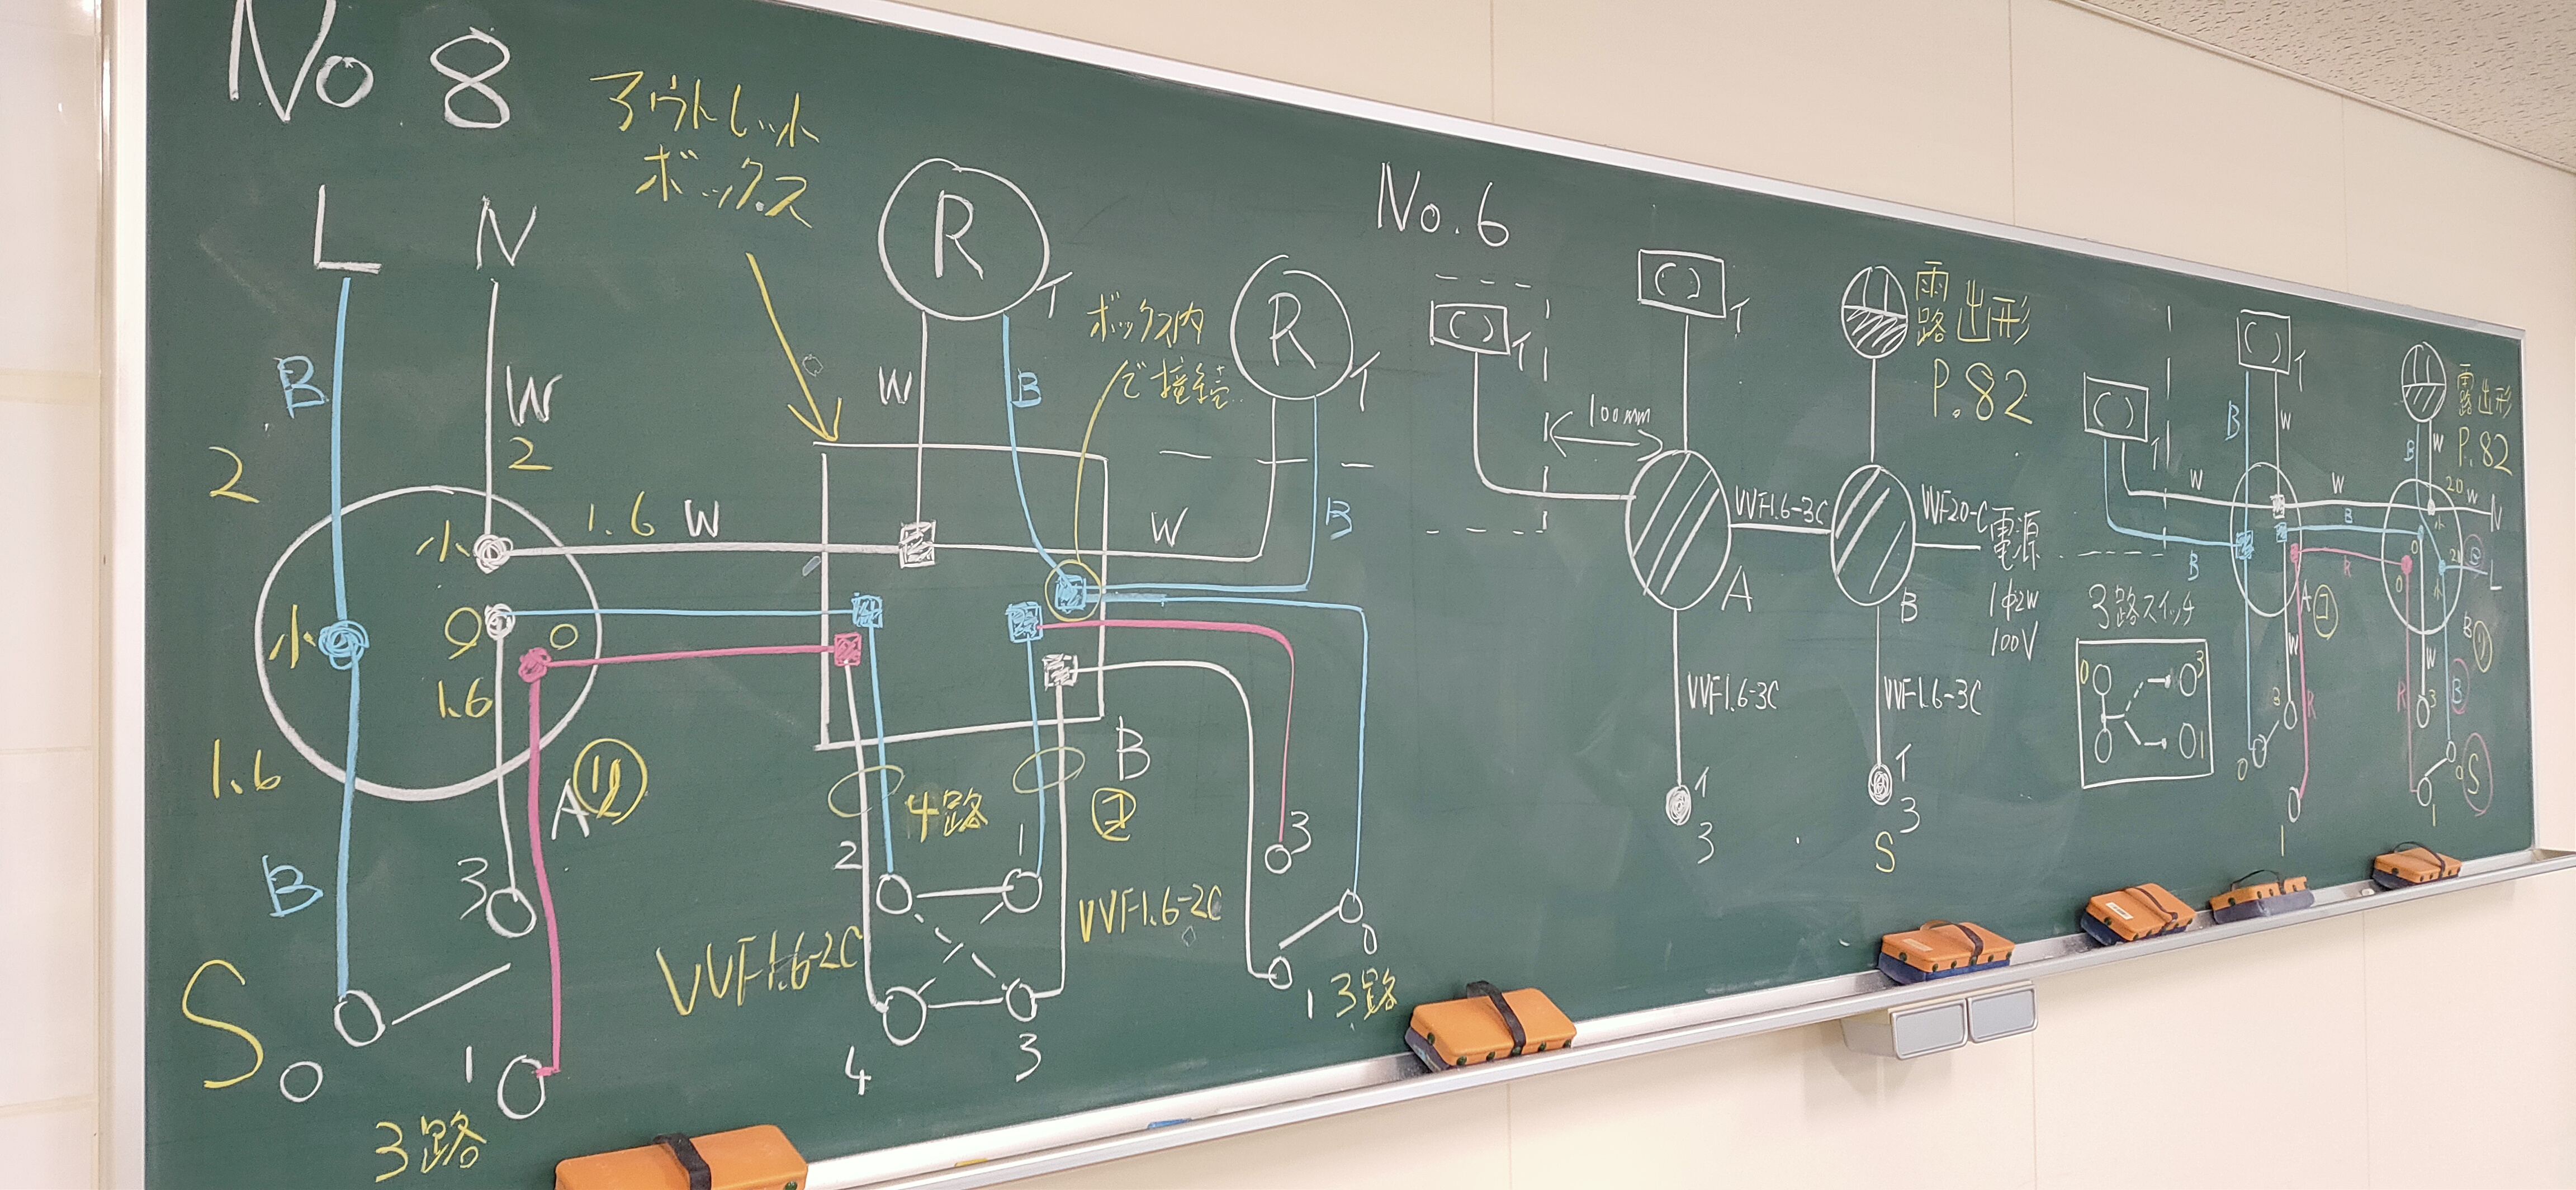 No 8
アウトレット
ボックス
L
N
R
T
ボックス内
で接続
R
T
B
W
2
2
W
B
W
B
1.6
W
小
小
○
○
1.6
1.6
A
B
4路
B
S
0
3
1
3路
2
1
VVF1.6-2C
VVF1.6-2C
4
3
3
0
1
3路
No.6
T
T
100mm
露出形
P.82
VVF1.6-3C
VVF2.0-C
電源
1φ2W
100V
A
B
VVF1.6-3C
VVF1.6-3C
T
3
T
3
S
T
T
露出形
P.82
B
W
B
W
W
W
20
W
N
B
B
R
A
小
小
L
3路スイッチ
0
3
1
W
R
3
0
1
W
R
B
B
3
0
1
S